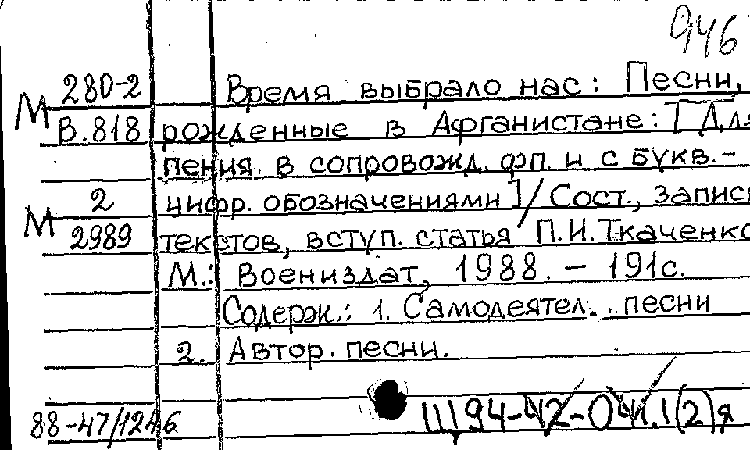 946
М 280-2 Время выбрало нас: Песни,
В.818 рожденные в Афганистане: [Для
пения в сопровожд. фп. и с букв.-
М 2 цифр. обозначениями]/Сост., запись
2989 текстов, вступ. статья П.И.Ткаченко
М.: Воениздат, 1988. – 191с.
Содерж.: 1. Самодеятел. песни
2. Автор. песни.
88-47/1246 Щ94-42-04я.1(2)я